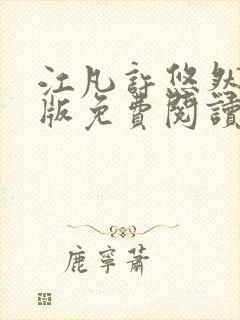 江凡許悠然
版免費閱讀
鹿寧蕭